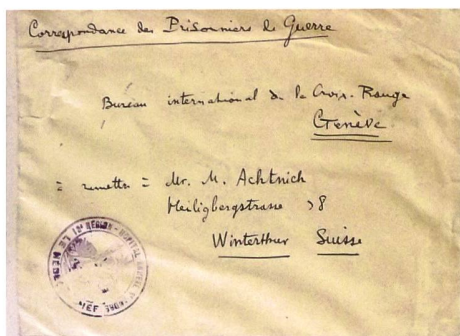 Correspondance des Prisonniers de Guerre
Bureau international de la Croix-Rouge
Genève
= remettre = Mr. M. Achtnich
Heiligbergstrasse 8
Winterthur Suisse